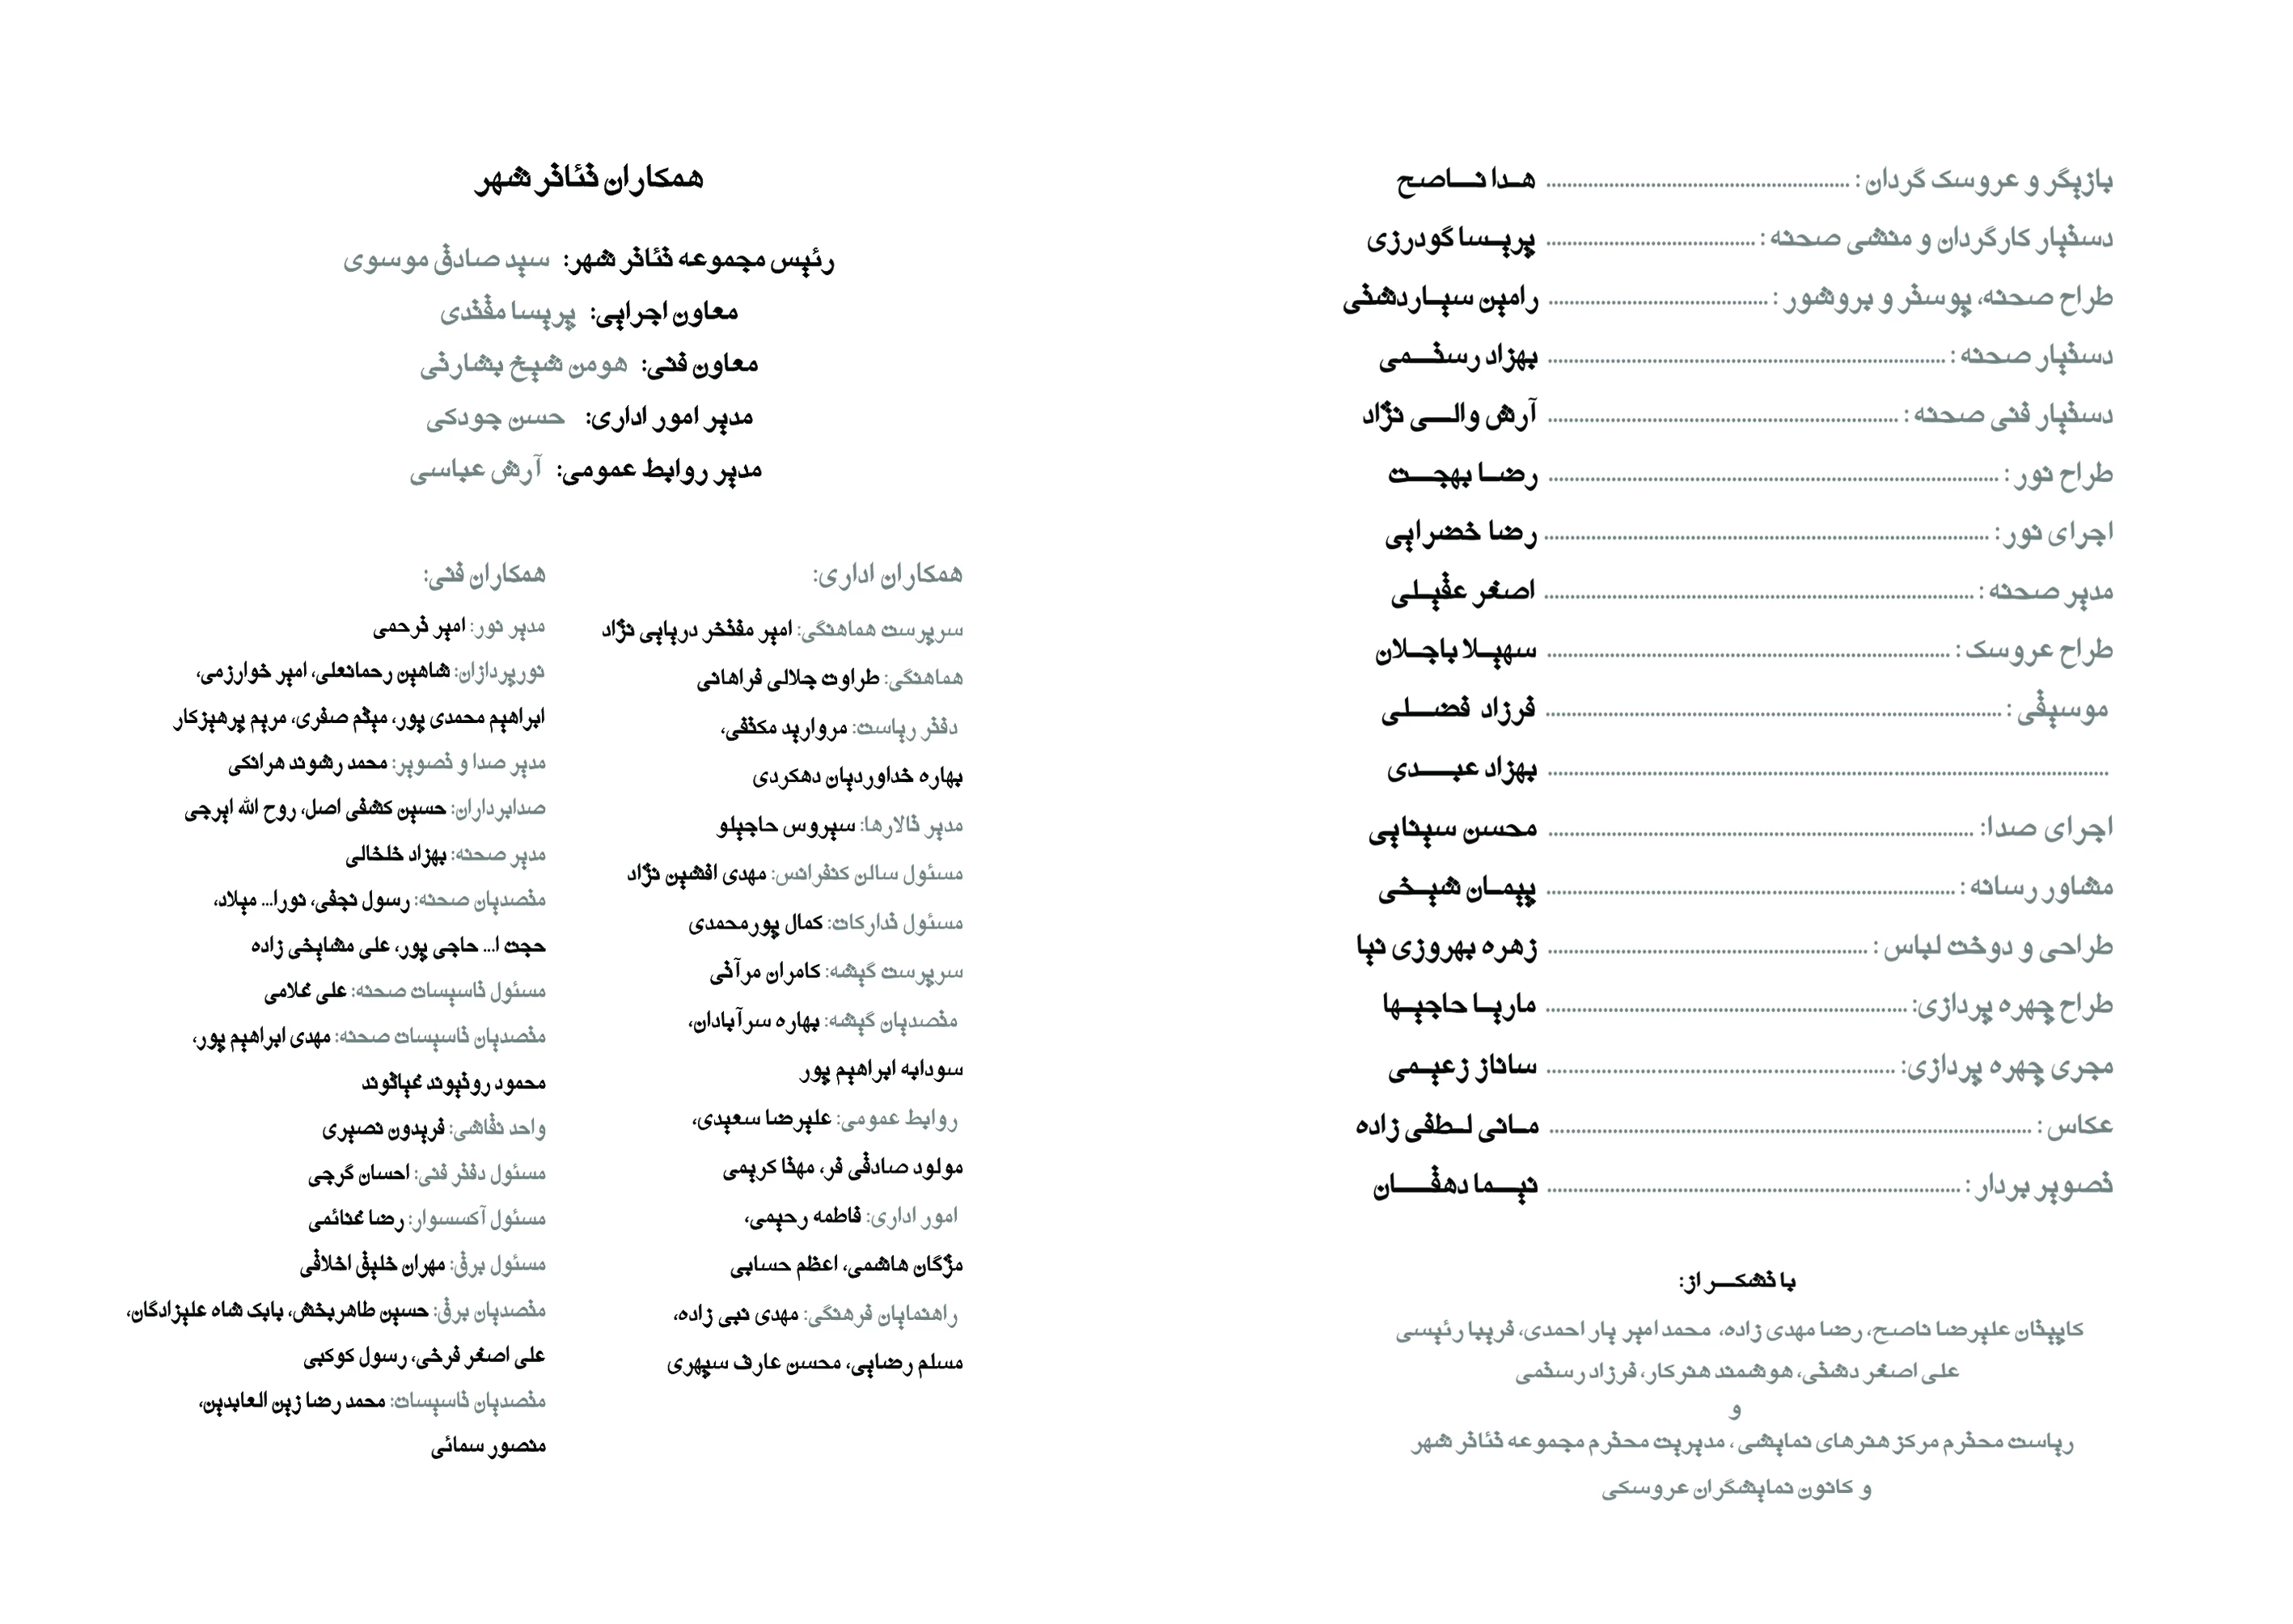 بازیگر و عروسک گردان : هدا ناصح
دستیار کارگردان و منشی صحنه : پریسا گودرزی
طراح صحنه، پوستر و بروشور : رامین سیاردشتی
دستیار صحنه : بهزاد رستمی
دستیار فنی صحنه : آرش والی نژاد
طراح نور : رضا بهجت
اجرای نور : رضا خضرایی
مدیر صحنه : اصغر عقیلی
طراح عروسک : سهیلا باجلان
موسیقی : فرزاد فضلی
بهزاد عبدی
اجرای صدا: محسن سینایی
مشاور رسانه : پیمان شیخی
طراحی و دوخت لباس : زهره بهروزی نیا
طراح چهره پردازی: ماریا حاجیها
مجری چهره پردازی: ساناز زعیمی
عکاس : مانی لطفی زاده
تصویر بردار : نیما دهقان
با تشکر از:
کاپیتان علیرضا ناصح، رضا مهدی زاده، محمد امیر یار احمدی، فریبا رئیسی
علی اصغر دشتی، هوشمند هنرکار، فرزاد رستمی
و
ریاست محترم مرکز هنرهای نمایشی ، مدیریت محترم مجموعه تئاتر شهر
و کانون نمایشگران عروسکی
همکاران تئاتر شهر
رئیس مجموعه تئاتر شهر: سید صادق موسوی
معاون اجرایی: پریسا مقتدی
معاون فنی: هومن شیخ بشارتی
مدیر امور اداری: حسن جودکی
مدیر روابط عمومی: آرش عباسی
همکاران اداری:
سرپرست هماهنگی: امیر مفتخر دریایی نژاد
هماهنگی: طراوت جلالی فراهانی
دفتر ریاست: مروارید مکتفی،
بهاره خداوردیان دهکردی
مدیر تالارها: سیروس حاجیلو
مسئول سالن کنفرانس: مهدی افشین نژاد
مسئول تدارکات: کمال پورمحمدی
سرپرست گیشه: کامران مرآتی
متصدیان گیشه: بهاره سرآبادان،
سودابه ابراهیم پور
روابط عمومی: علیرضا سعیدی،
مولود صادقی فر، مهتا کریمی
امور اداری: فاطمه رحیمی،
مژگان هاشمی، اعظم حسابی
راهنمایان فرهنگی: مهدی نبی زاده،
مسلم رضایی، محسن عارف سپهری
همکاران فنی:
مدیر نور: امیر ترحمی
نورپردازان: شاهین رحمانعلی، امیر خوارزمی،
ابراهیم محمدی پور، میثم صفری، مریم پرهیزکار
مدیر صدا و تصویر: محمد رشوند هرانکی
صدابرداران: حسین کشفی اصل، روح الله ایرجی
مدیر صحنه: بهزاد خلخالی
متصدیان صحنه: رسول نجفی، نورا... میلاد،
حجت ا... حاجی پور، علی مشایخی زاده
مسئول تاسیسات صحنه: علی غلامی
متصدیان تاسیسات صحنه: مهدی ابراهیم پور،
محمود روتیوند غیاثوند
واحد نقاشی: فریدون نصیری
مسئول دفتر فنی: احسان گرجی
مسئول آکسسوار: رضا غنائمی
مسئول برق: مهران خلیق اخلاقی
متصدیان برق: حسین طاهربخش، بابک شاه علیزادگان،
علی اصغر فرخی، رسول کوکبی
متصدیان تاسیسات: محمد رضا زین العابدین،
منصور سمائی